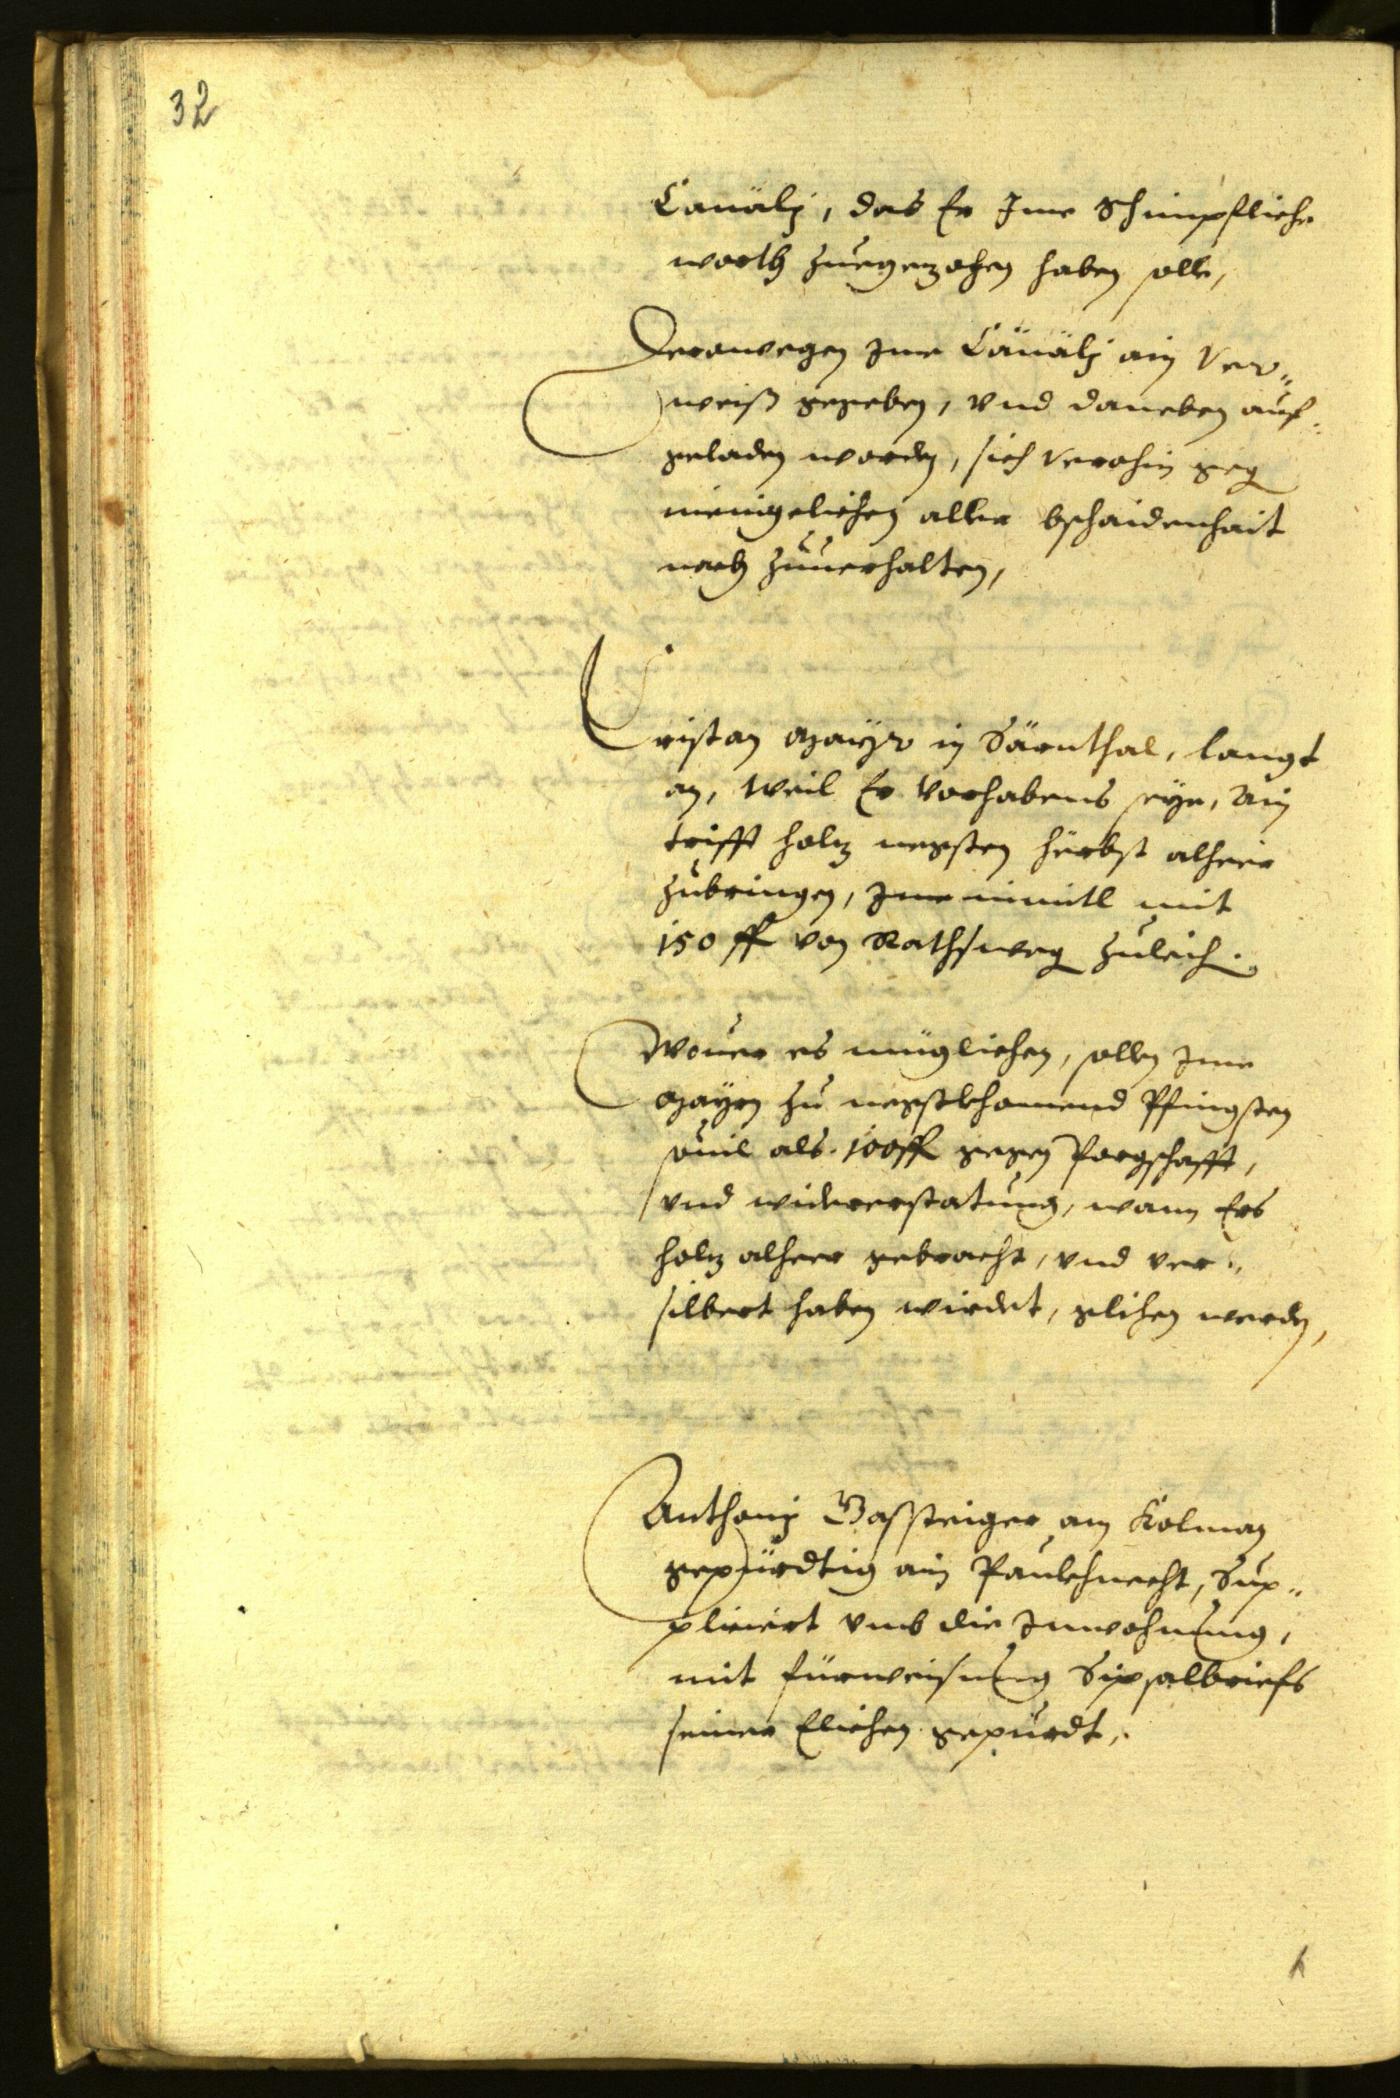 32
Cauälj, das Er Ime Schimpfliche
worth zuegezohen haben solle,
Derowegen Ime Cäuälj ain Ver„
weiß gegeben, vnd daneben auf„
geladen worden, sich verohin geg
menigelichen aller bschaidenhait
nach zuuerhalten,
Cristan Mayr in Särnthal, langt
an, weil Er vorhabens seye, Ain
trifft holz negsten herbst alheer
zubringen, Ime mit
150 ff von Rathsweg zuleich.
Wouer es müglichen, sollen Ime
Mayrn zu negstkhomend Pfingsten
souil als 100 ff gegen Porgschafft,
vnd widererstatung, wann Ers
holz alheer gebracht, vnd ver„
silbert haben wirdet, glihen werden,
Anthonj Gassteiger am Kolman
gepürdtig ain Paukhnecht, Sup„
pliciert vmb die Inwohnung,
mit fürweisung Sipsalbriefs
seiner Elichen gepürdt,